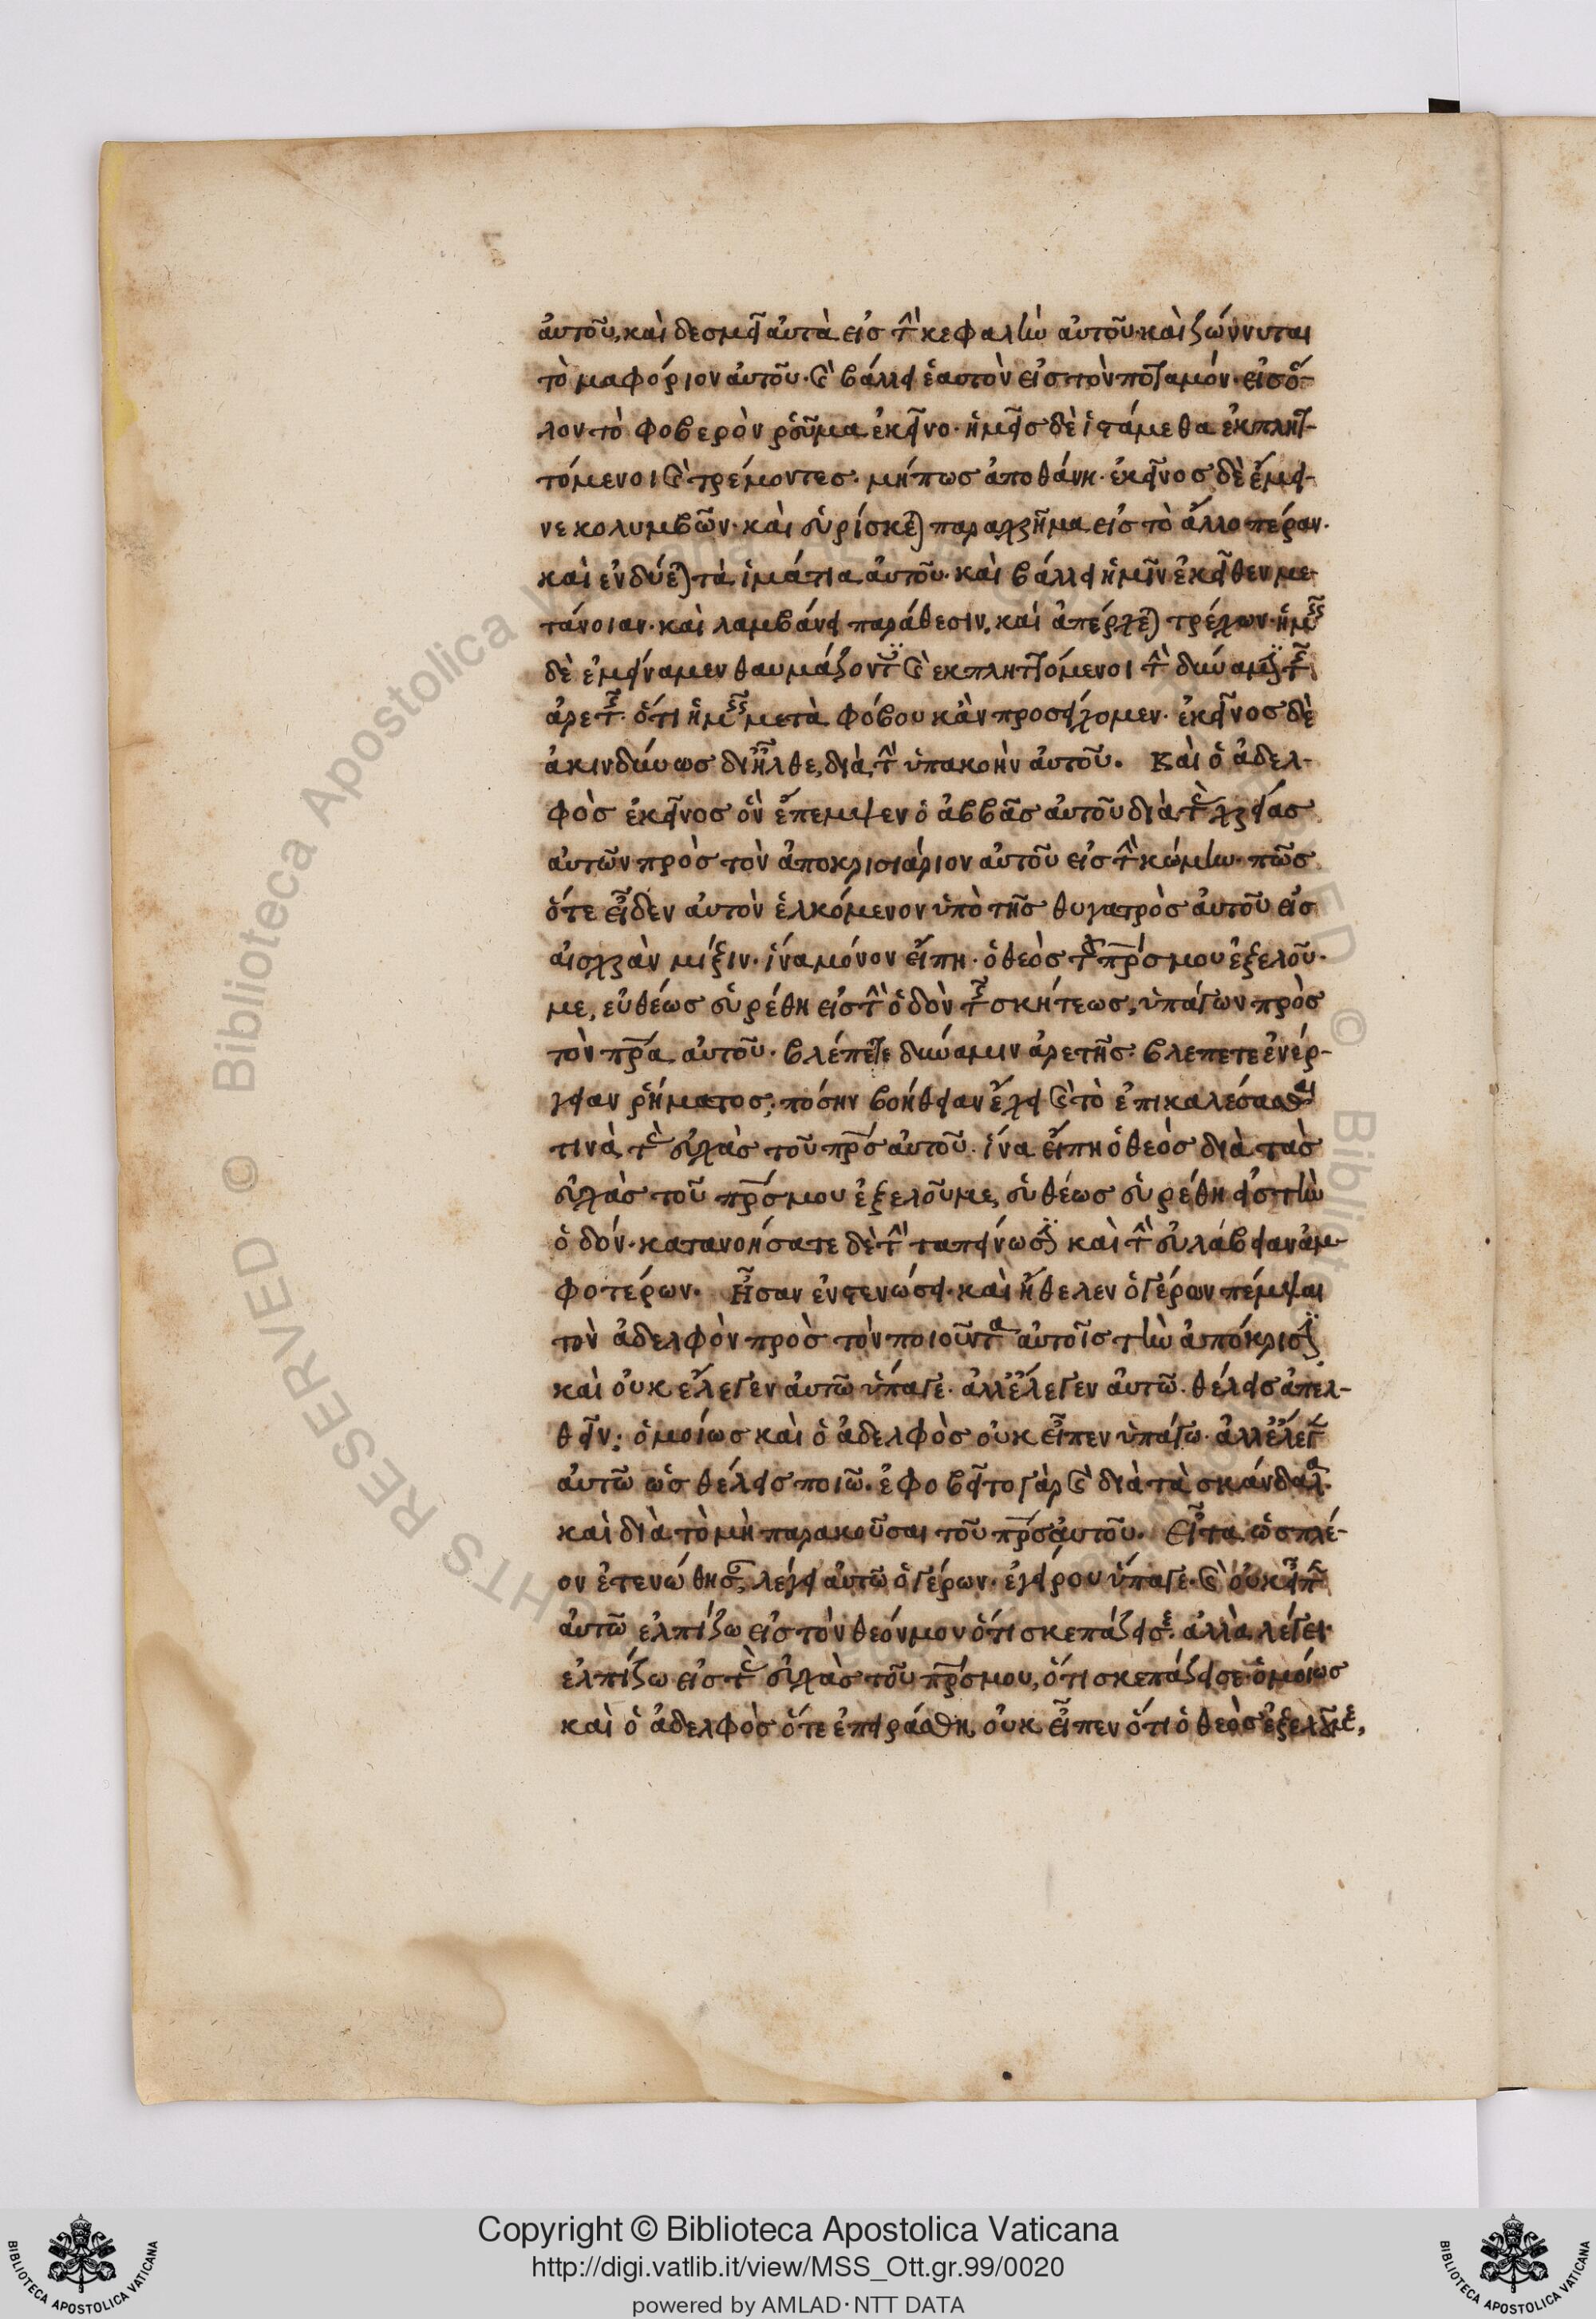 αὐτοῦ, καὶ δεσμεῖ αὐτὰ εἰς τὴν κεφαλὴν αὐτοῦ· καὶ ζώννυται
τὸ μαφόριον αὐτοῦ· καὶ βάλλει ἑαυτὸν εἰς τὸν ποταμόν· εἰς ὅ-
λον τὸ φοβερὸν ῥεῦμα ἐκεῖνο· ἡμεῖς δὲ ἱστάμεθα ἐκπλητ-
τόμενοι καὶ τρέμοντες· μήπως ἀποθάνη· ἐκεῖνος δὲ ἔμει-
νε κολυμβῶν· καὶ εὑρίσκεται παραχρῆμα εἰς τὸ ἄλλο πέραν·
καὶ ἐνδύεται τὰ ἱμάτια αὐτοῦ· καὶ βάλλει ἡμῖν ἐκεῖθεν με-
τάνοιαν· καὶ λαμβάνει παράθεσιν, καὶ ἀπέρχεται τρέχων· ἡμεῖς
δὲ ἐμείναμεν θαυμάζοντες καὶ ἐκπληττόμενοι τὴν δύναμιν τῆς
ἀρετῆς· ὅτι ἡμεῖς μετὰ φόβου κἂν προσείχομεν· ἐκεῖνος δὲ
ἀκινδύνως διῆλθε, διὰ τὴν ὑπακοὴν αὐτοῦ. Καὶ ὁ ἀδελ-
φὸς ἐκεῖνος ὃν ἔπεμψεν ὁ ἀββᾶς αὐτοῦ διὰ τὰς χρείας
αὐτῶν πρὸς τὸν ἀποκρισιάριον αὐτοῦ εἰς τὴν κώμην· πῶς
ὅτε εἶδεν αὐτὸν ἑλκόμενον ὑπὸ τῆς θυγατρὸς αὐτοῦ εἰς
αἰσχρὰν μίξιν· ἵνα μόνον εἴπη· ὁ θεὸς τοῦ πρσ μου ἐξελοῦ
με, εὐθέως εὑρέθη εἰς τὴν ὁδὸν τῆς σκήτεως, ὑπάγων πρὸς
τὸν πρα αὐτοῦ· βλέπετε δύναμιν ἀρετῆς· βλεπετε ἐνέρ-
γειαν ῥήματος; πόσην βοήθειαν ἔχει καὶ τὸ ἐπικαλέσασθαι
τινὰ τὰς εὐχὰς τοῦ πρσ αὐτοῦ· ἵνα εἴπη ὁ θεὸς διὰ τὰς
εὐχὰς τοῦ πρσ μου ἐξελοῦ με, εὐθέως εὑρέθη εἰς τὴν
ὁδόν· κατανοήσατε δὲ τὴν ταπείνωσιν καὶ τὴν εὐλάβειαν ἀμ-
φοτέρων· Ἦσαν ἐν στενώσει· καὶ ἤθελεν ὁ γέρων πέμψαι
τὸν ἀδελφὸν πρὸς τὸν ποιοῦντα αὐτοῖς τὴν ἀπόκρισιν
καὶ οὐκ ἔλεγεν αὐτῶ ὕπαγε· ἀλλ' ἔλεγεν αὐτῶ· θέλεις ἀπελ-
θεῖν; ὁμοίως καὶ ὁ ἀδελφὸς οὐκ εἶπεν ὑπάγω· ἀλλ' ἔλεγεν
αὐτῶ ὡς θέλεις ποιῶ· ἐφοβεῖτο γὰρ καὶ διὰ τὰ σκάνδαλα·
καὶ διὰ τὸ μὴ παρακοῦσαι τοῦ πρσ αὐτοῦ. Εἶτα ὡς πλέ-
ον ἐστενώθησαν, λέγει αὐτῶ ὁ γέρων· ἐγείρου ὕπαγε· καὶ οὐκ εἶπεν
αὐτῶ ἐλπίζω εἰς τὸν θεόν μου ὅτι σκεπάζει σε· ἀλλὰ λέγει
ἐλπίζω εἰς τὰς εὐχὰς τοῦ πρσ μου, ὅτι σκεπάζει σε· ὁμοίως
καὶ ὁ ἀδελφὸς ὅτε ἐπειράσθη, οὐκ εἶπεν ὅτι ὁ θεὸς ἐξελοῦ με,
Copyright © Biblioteca Apostolica Vaticana
http://digi.vatlib.it/view/MSS_Ott.gr.99/0020
powered by AMLAD·NTT DATA